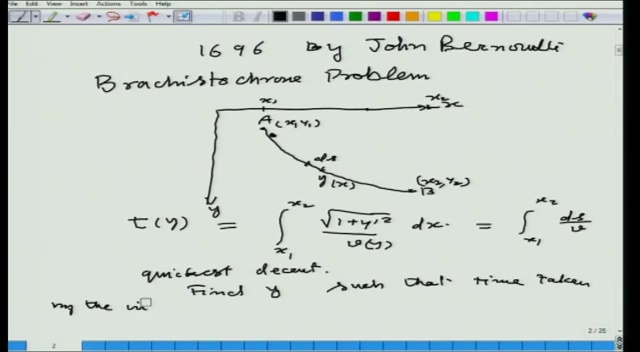 File Edit View Insert Actions Tools Help
1696 By John Bernoulli
Brachistochrone Problem
x₁ x₂ x
A (x₁, y₁)
ds
y(x) (x₂, y₂)
B
y
t(y) = ∫_{x₁}^{x₂} √(1+y'²)/v(y) dx. = ∫_{x₁}^{x₂} ds/v
quickest decent.
Find y such that time taken
by the
2 2/25